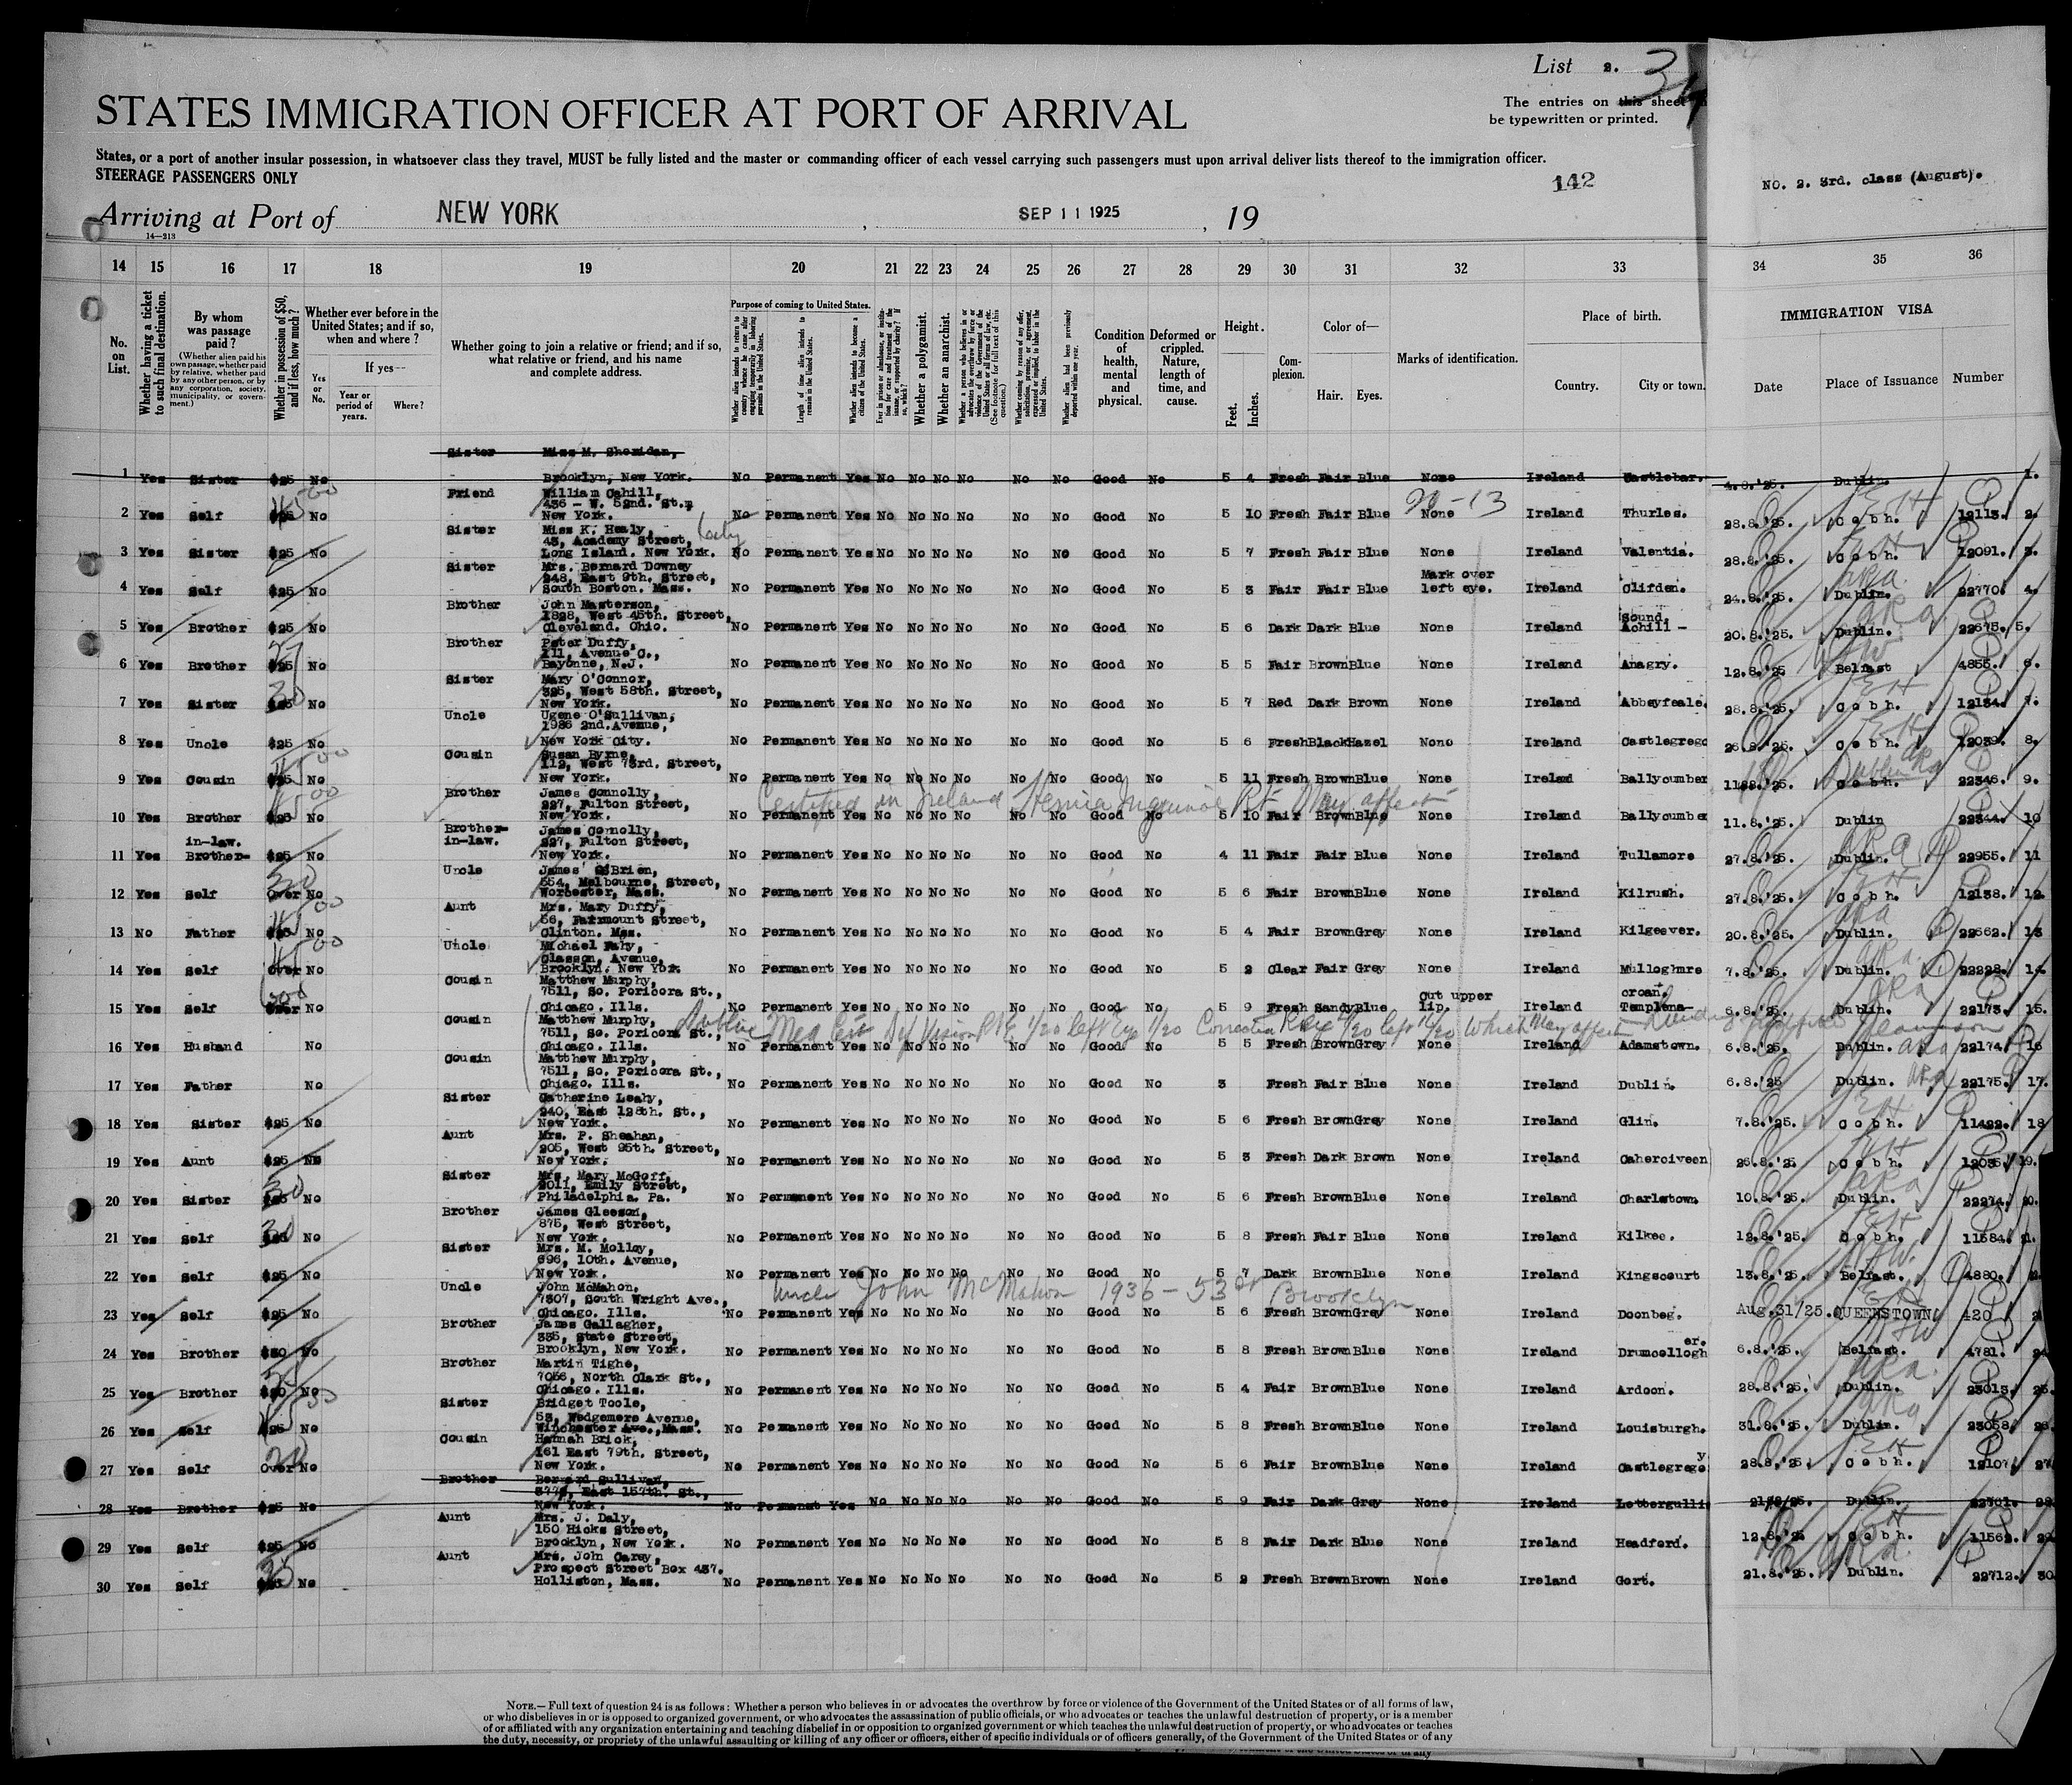 List 2. 34
STATES IMMIGRATION OFFICER AT PORT OF ARRIVAL
The entries on this sheet
be typewritten or printed.
States, or a port of another insular possession, in whatsoever class they travel, MUST be fully listed and the master or commanding officer of each vessel carrying such passengers must upon arrival deliver lists thereof to the immigration officer.
STEERAGE PASSENGERS ONLY
142
NO. 2. 3rd. class (August).
Arriving at Port of NEW YORK , SEP 11 1925 , 19
14—213
14 15 16 17 18 19 20 21 22 23 24 25 26 27 28 29 30 31 32 33 34 35 36
No. on List.
Whether having a ticket to such final destination.
By whom was passage paid?
(Whether alien paid his own passage, whether paid by relative, whether paid by any other person, or by any corporation, society, municipality, or government.)
Whether in possession of $50, and if less, how much?
Whether ever before in the United States; and if so, when and where?
Yes or No.
If yes—
Year or period of years.
Where?
Whether going to join a relative or friend; and if so, what relative or friend, and his name and complete address.
Purpose of coming to United States.
Whether alien intends to return to country whence he came after engaging temporarily in laboring pursuits in the United States.
Length of time alien intends to remain in the United States.
Whether alien intends to become a citizen of the United States.
Whether a polygamist.
Whether an anarchist.
Condition of health, mental and physical.
Deformed or crippled. Nature, length of time, and cause.
Height.
Feet. Inches.
Complexion.
Color of—
Hair. Eyes.
Marks of identification.
Place of birth.
Country. City or town.
IMMIGRATION VISA
Date Place of Issuance Number
Sister Miss M. Sheridan,
1 Yes Sister $25 No Brooklyn, New York. No Permanent Yes No No No No No No Good No 5 4 Fresh Fair Blue None Ireland Castlebar. 4.8.'25. Dublin. 1.
Friend William Cahill,
436 - W. 52nd. St.,
2 Yes Self No New York. No Permanent Yes No No No No No No Good No 5 10 Fresh Fair Blue None Ireland Thurles. 28.8.'25. Cobh. 12113. 2.
Sister Miss K. Healy,
43, Academy Street,
3 Yes Sister $25 No Long Island. New York. No Permanent Yes No No No No No No Good No 5 7 Fresh Fair Blue None Ireland Valentia. 28.8.'25. Cobh. 12091. 3.
Sister Mrs. Bernard Downey
248, East 9th. Street, Mark over
4 Yes Self $25 No South Boston. Mass. No Permanent Yes No No No No No No Good No 5 3 Fair Fair Blue left eye. Ireland Clifden. 24.8.'25. Dublin. 22770. 4.
Brother John Masterson,
1828, West 45th. Street, Sound.
5 Yes Brother $25 No Cleveland. Ohio. No Permanent Yes No No No No No No Good No 5 6 Dark Dark Blue None Ireland Achill - 20.8.'25. Dublin. 22675. 5.
Brother Peter Duffy,
111, Avenue C.,
6 Yes Brother $25 No Bayonne, N.J. No Permanent Yes No No No No No No Good No 5 5 Fair Brown Blue None Ireland Anagry. 12.8.'25 Belfast 4855. 6.
Sister Mary O'Connor,
325, West 58th. Street,
7 Yes Sister No New York. No Permanent Yes No No No No No No Good No 5 7 Red Dark Brown None Ireland Abbeyfeale. 28.8.'25. Cobh. 12134. 7.
Uncle Ugene O'Sullivan,
1926 2nd. Avenue,
8 Yes Uncle $25 No New York City. No Permanent Yes No No No No No No Good No 5 6 Fresh Black Hazel None Ireland Castlegreg 26.8.'25. Cobh. 12039. 8.
Cousin Susan Byrne,
112, West 73rd. Street,
9 Yes Cousin No New York. No Permanent Yes No No No No No No Good No 5 11 Fresh Brown Blue None Ireland Ballycumber Cobh. Dublin 22346. 9.
Brother James Connolly,
227, Fulton Street, Certified in Ireland Hernia Inguinal Rt May affect
10 Yes Brother No New York. No Permanent Yes No No No No No No Good No 5 10 Fair Brown Blue None Ireland Ballycumbe 11.8.'25. Dublin 22344. 10
Brother-in-law. James Connolly,
in-law. 227, Fulton Street,
11 Yes Brother- $25 No New York. No Permanent Yes No No No No No No Good No 4 11 Fair Fair Blue None Ireland Tullamore 27.8.'25. Dublin. 22955. 11
Uncle James O'Brien,
554, Melbourne, Street,
12 Yes Self Over No Worcester, Mass. No Permanent Yes No No No No No No Good No 5 6 Fair Brown Blue None Ireland Kilrush. 27.8.'25. Cobh. 12138. 12.
Aunt Mrs. Mary Duffy,
56, Fairmount Street,
13 No Father No Clinton. Mas. No Permanent Yes No No No No No No Good No 5 4 Fair Brown Grey None Ireland Kilgeever. 20.8.'25. Dublin. 22662. 13
Uncle Michael Fahy,
Classon, Avenue,
14 Yes Self Over No Brooklyn. New York No Permanent Yes No No No No No No Good No 5 2 Clear Fair Grey None Ireland Mulloghmre 7.8.'25. Dublin. 22228. 14.
Cousin Matthew Murphy,
7511, So. Poricora St., Cut upper croan.
15 Yes Self Over No Chicago. Ills. No Permanent Yes No No No No No No Good No 5 9 Fresh Sandy Blue lip. Ireland Templena- 6.8.'25. Dublin. 22173. 15.
Cousin Matthew Murphy,
7511, So. Poricora St.,
16 Yes Husband No Chicago. Ills. No Permanent Yes No No No No No No Good No 5 5 Fresh Brown Grey None Ireland Adamstown. 6.8.'25. Dublin. 22174. 16
Cousin Matthew Murphy,
7511, So. Poricora St.,
17 Yes Father No Chiago. Ills. No Permanent Yes No No No No No No Good No 3 Fresh Fair Blue None Ireland Dublin. 6.8.'25 Dublin. 22175. 17.
Sister Catherine Leahy,
240, East 128th. St.,
18 Yes Sister $25 No New York. No Permanent Yes No No No No No No Good No 5 6 Fresh Brown Grey None Ireland Glin. 7.8.'25. Cobh. 11422. 18
Aunt Mrs. P. Sheahan,
205, West 95th. Street,
19 Yes Aunt $25 No New York. No Permanent Yes No No No No No No Good No 5 3 Fresh Dark Brown None Ireland Caherciveen 26.8.'25 Cobh. 19.
Sister Mrs. Mary McGoff,
2011, Emily Street,
20 Yes Sister No Philadelphia. Pa. No Permanent Yes No No No No No No Good No 5 6 Fresh Brown Blue None Ireland Charlstown 10.8.'25. Dublin. 22274. 20.
Brother James Gleeson,
875, West Street,
21 Yes Self No New York. No Permanent Yes No No No No No No Good No 5 8 Fresh Fair Blue None Ireland Kilkee. 12.8.'25. Cobh. 11584.
Sister Mrs. M. Molloy,
696, 10th. Avenue,
22 Yes Self $25 No New York. No Permanent Yes No No No No No No Good No 5 7 Dark Brown Blue None Ireland Kingscourt 13.8.'25. Belfast. 4880.
Uncle John McMahon, Uncle John McMahon 1936 - 53rd Brooklyn
7307, South Wright Ave.,
23 Yes Self $25 No Chicago. Ills. No Permanent Yes No No No No No No Good No 5 6 Fresh Brown Grey None Ireland Doonbeg. Aug.31/25. QUEENSTOWN 420
Brother James Gallagher,
335, State Street, er.
24 Yes Brother $30 No Brooklyn, New York. No Permanent Yes No No No No No No Good No 5 8 Fresh Brown Blue None Ireland Drumcollogh 6.8.'25. Belfast. 4781.
Brother Martin Tighe,
7056, North Clark St.,
25 Yes Brother No Chicago. Ills. No Permanent Yes No No No No No No Good No 5 4 Fair Brown Blue None Ireland Ardcon. 28.8.'25. Dublin. 23013. 25.
Sister Bridget Toole,
53, Wedgemere Avenue,
26 Yes Self No Winchester Ave., Mass. No Permanent Yes No No No No No No Good No 5 8 Fresh Brown Blue None Ireland Louisburgh. 31.8.'25. Dublin. 23058. 26.
Cousin Hannah Brick,
161 East 79th. Street, y
27 Yes Self Over No New York. No Permanent Yes No No No No No No Good No 5 6 Fair Brown Blue None Ireland Castlegrego 28.8.'25. Cobh. 12107. 27
Brother Bernard Sullivan,
East 157th. St.,
28 Yes Brother $25 No New York. No Permanent Yes No No No No No No Good No 5 9 Fair Dark Grey None Ireland Lettergulli Dublin. 28
Aunt Mrs. J. Daly,
150 Hicks Street,
29 Yes Self $25 No Brooklyn, New York. No Permanent Yes No No No No No No Good No 5 8 Fair Dark Blue None Ireland Headford. 12.8.'25 Cobh. 11562. 29
Aunt Mrs. John Carey,
Prospect Street Box 437.
30 Yes Self No Holliston, Mass. No Permanent Yes No No No No No No Good No 5 2 Fresh Brown Brown None Ireland Gort. 21.8.'25. Dublin. 22712. 30
NOTE.—Full text of question 24 is as follows: Whether a person who believes in or advocates the overthrow by force or violence of the Government of the United States or of all forms of law,
or who disbelieves in or is opposed to organized government, or who advocates the assassination of public officials, or who advocates or teaches the unlawful destruction of property, or is a member
of or affiliated with any organization entertaining and teaching disbelief in or opposition to organized government or which teaches the unlawful destruction of property, or who advocates or teaches
the duty, necessity, or propriety of the unlawful assaulting or killing of any officer or officers, either of specific individuals or of officers generally, of the Government of the United States or of any